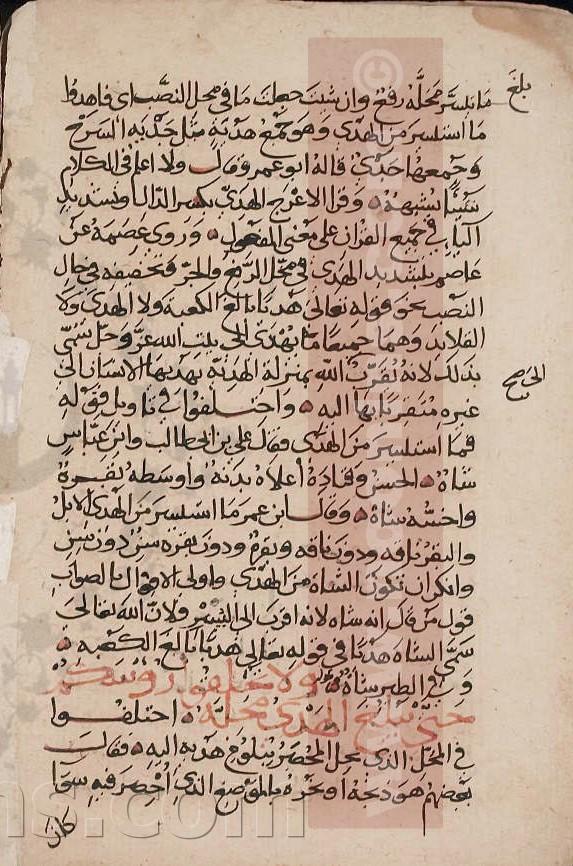 بلغ
ما تيسر محله رفع وان شئت جعلت ما في محل النصب اي فاهدوا
ما استيسر من الهدي وهو جمع هدية مثل جدية السرج
وجمعها جدي قاله ابو عمر وقال ولا اعلم في الكلام
شيئا يشبهه وقرا الاعرج الهدي بكسر الدال وتشديد
اليا في جميع القران على معنى المفعول وروى عصمة عن
عاصم بتشديد الهدي في محل الرفع والجر وتخفيفه في حال
النصب نحو قوله تعالى هديا بالغ الكعبة ولا الهدي ولا
القلايد وهما جميعا ما يهدى الى بيت الله عز وجل سمي
بذلك لانه تقرب الى الله بمنزلة الهدية يهديها الانسان الى
غيره متقربا بها اليه واختلفوا في تاويل قوله
فما استيسر من الهدي فقال علي بن ابي طالب وابن عباس
شاة الحسن وقتادة اعلاه بدنة واوسطه بقرة
واخسه شاة وقال ابن عمر ما استيسر من الهدي الابل
والبقر ناقة ودون ناقة وبقرة ودون بقرة سن دون سن
وانكر ان تكون الشاة من الهدي واولى الاقوال بالصواب
قول من قال انه شاة لانه اقرب الى التيسر ولان الله تعالى
سمى الشاة هديا في قوله تعالى هديا بالغ الكعبة
وفي الطير شاة ولا تحلقوا رؤسكم
حتى يبلغ الهدي محله اختلفوا
في المحل الذي يحل المحصر ببلوغ هديه اليه فقال
بعضهم هو ذبحه او نحره بالموضع الذي احصر فيه سوا
كان